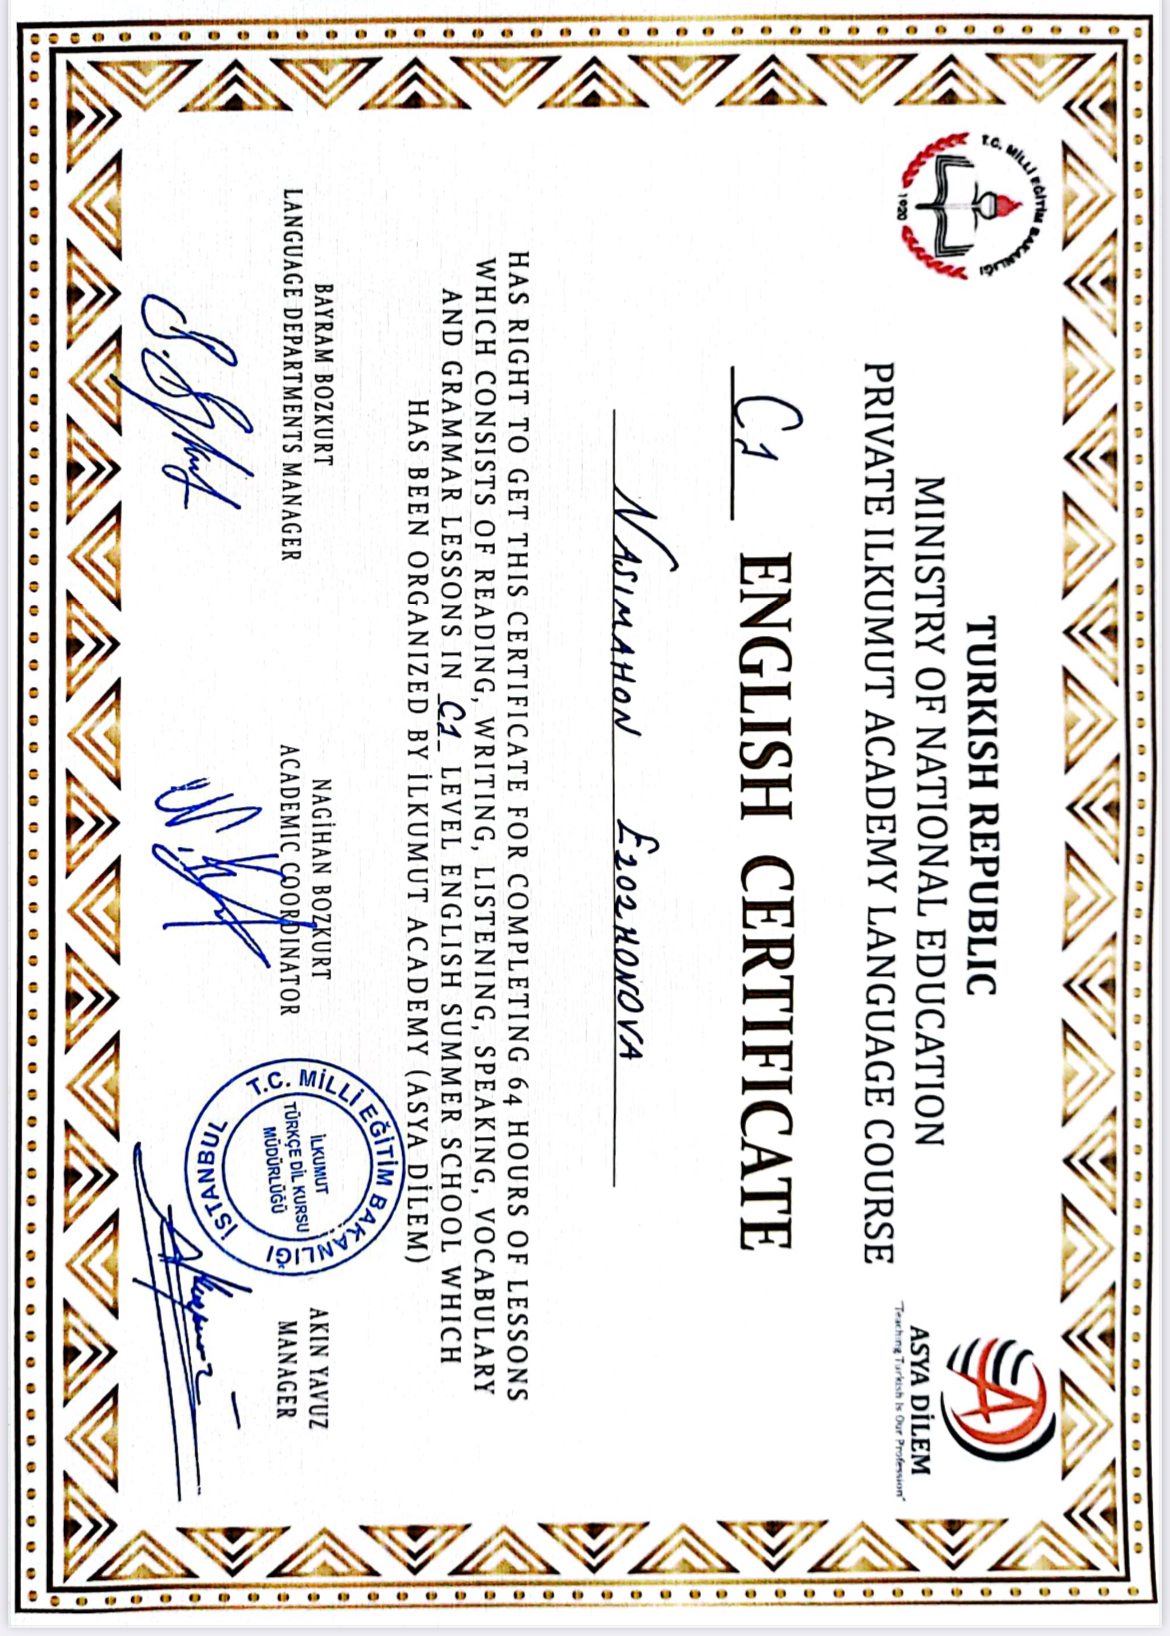 T.C. MİLLİ EĞİTİM BAKANLIĞI
1920
ASYA DİLEM
"Teaching Turkish Is Our Profession"
TURKISH REPUBLIC
MINISTRY OF NATIONAL EDUCATION
PRIVATE ILKUMUT ACADEMY LANGUAGE COURSE
C1 ENGLISH CERTIFICATE
NASIMAHON EZOZHONOVA
HAS RIGHT TO GET THIS CERTIFICATE FOR COMPLETING 64 HOURS OF LESSONS
WHICH CONSISTS OF READING, WRITING, LISTENING, SPEAKING, VOCABULARY
AND GRAMMAR LESSONS IN C1 LEVEL ENGLISH SUMMER SCHOOL WHICH
HAS BEEN ORGANIZED BY İLKUMUT ACADEMY (ASYA DİLEM)
BAYRAM BOZKURT
LANGUAGE DEPARTMENTS MANAGER
NAGİHAN BOZKURT
ACADEMIC COORDINATOR
T.C. MİLLİ EĞİTİM BAKANLIĞI
İLKUMUT
TÜRKÇE DİL KURSU
MÜDÜRLÜĞÜ
İSTANBUL
AKIN YAVUZ
MANAGER